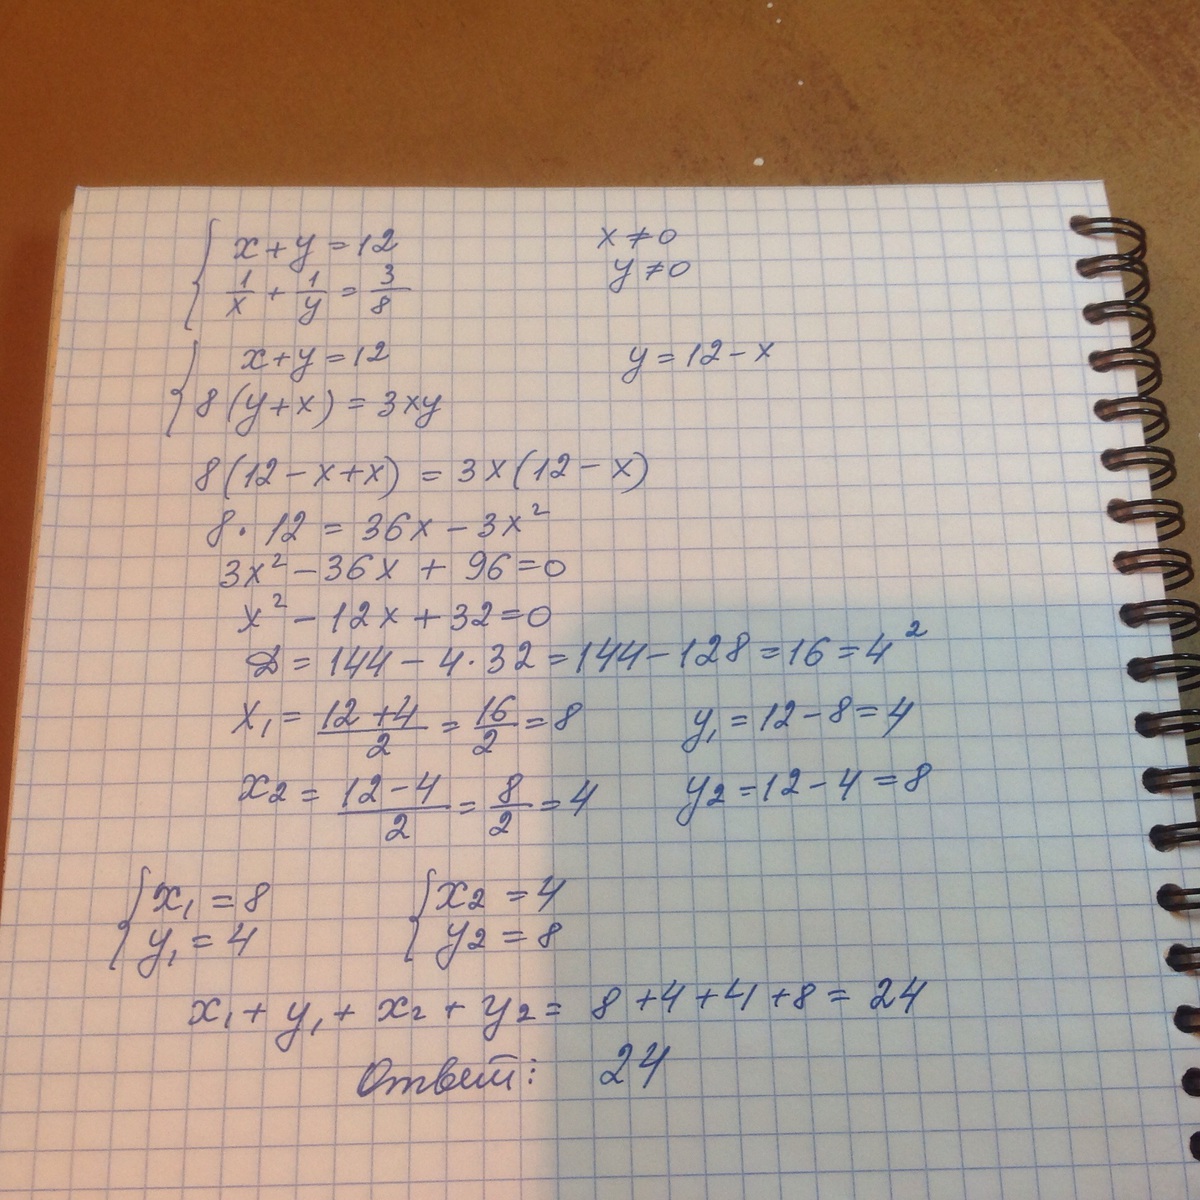 { x + y = 12     x ≠ 0
{ 1/x + 1/y = 3/8     y ≠ 0
{ x + y = 12     y = 12 - x
{ 8(y + x) = 3xy
8(12 - x + x) = 3x(12 - x)
8 · 12 = 36x - 3x²
3x² - 36x + 96 = 0
x² - 12x + 32 = 0
D = 144 - 4 · 32 = 144 - 128 = 16 = 4²
x₁ = (12 + 4)/2 = 16/2 = 8     y₁ = 12 - 8 = 4
x₂ = (12 - 4)/2 = 8/2 = 4     y₂ = 12 - 4 = 8
{ x₁ = 8     { x₂ = 4
{ y₁ = 4     { y₂ = 8
x₁ + y₁ + x₂ + y₂ = 8 + 4 + 4 + 8 = 24
Ответ: 24